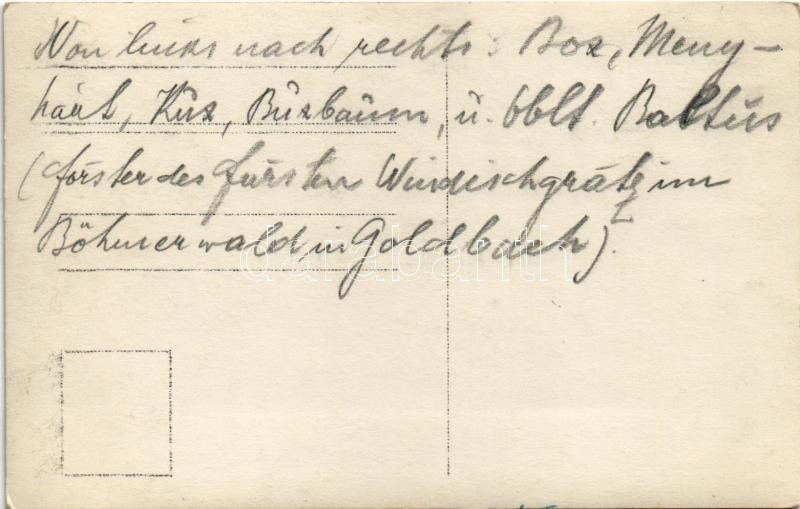 Von links nach rechts: Box, Meny-
hárt, Kúx, Buxbaum, u. Oblt. Baltus
(Förster des Fürsten Windischgrätz im
Böhmerwald, in Goldbach).
darabanth